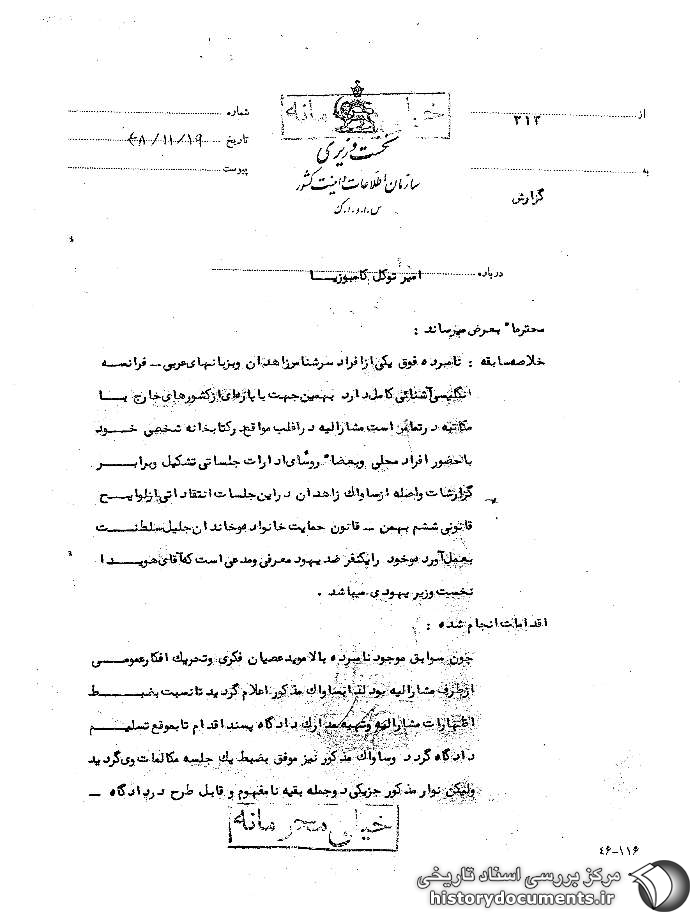 خیلی محرمانه
از ۳۱۲
شماره
نخست وزیری
تاریخ ۴۸/۱۱/۱۹
سازمان اطلاعات و امنیت کشور
پیوست
به
س.ا.و.ا.ک
گزارش
درباره امیر توکل کامبوزیا
محترما" بعرض میرساند :
خلاصه سابقه : نامبرده فوق یکی از افراد سرشناس زاهدان و بزبانهای عربی – فرانسه
انگلیسی آشنائی کامل دارد بهمین جهت با پاره‌ای از کشورهای خارج با
مکاتبه در تماس است مشارالیه در اغلب مواقع در کتابخانه شخصی خود
با حضور افراد محلی و بعضا" روسای ادارات جلساتی تشکیل و برابر
گزارشات واصله از ساواک زاهدان در این جلسات انتقاداتی از لوایح
قانونی ششم بهمن – قانون حمایت خانواده و خاندان جلیل سلطنت
بعمل آورده و خود را یکنفر ضد یهود معرفی و مدعی است که آقای هویدا
نخست وزیر یهودی میباشد .
اقدامات انجام شده :
چون سوابق موجود نامبرده بالا موید عصیان فکری و تحریک افکار عمومی
از طرف مشارالیه بود لذا بساواک مذکور اعلام گردید تا نسبت بضبط
اظهارات مشارالیه و تهیه مدارک دادگاه پسند اقدام تا بموقع تسلیم
دادگاه گردد و ساواک مذکور نیز موفق بضبط یک جلسه مکالمات وی گردید
ولیکن نوار مذکور جز یکی دو جمله بقیه نامفهوم و قابل طرح در دادگاه –
خیلی محرمانه
۴۶–۱۱۶
مرکز بررسی اسناد تاریخی
historydocuments.ir